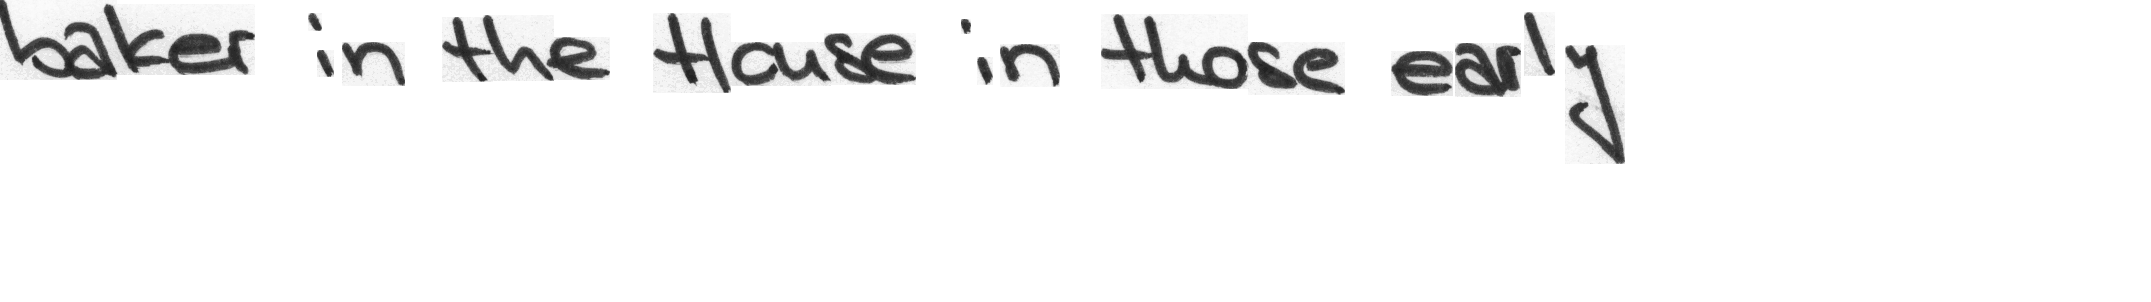 baker in the House in those early